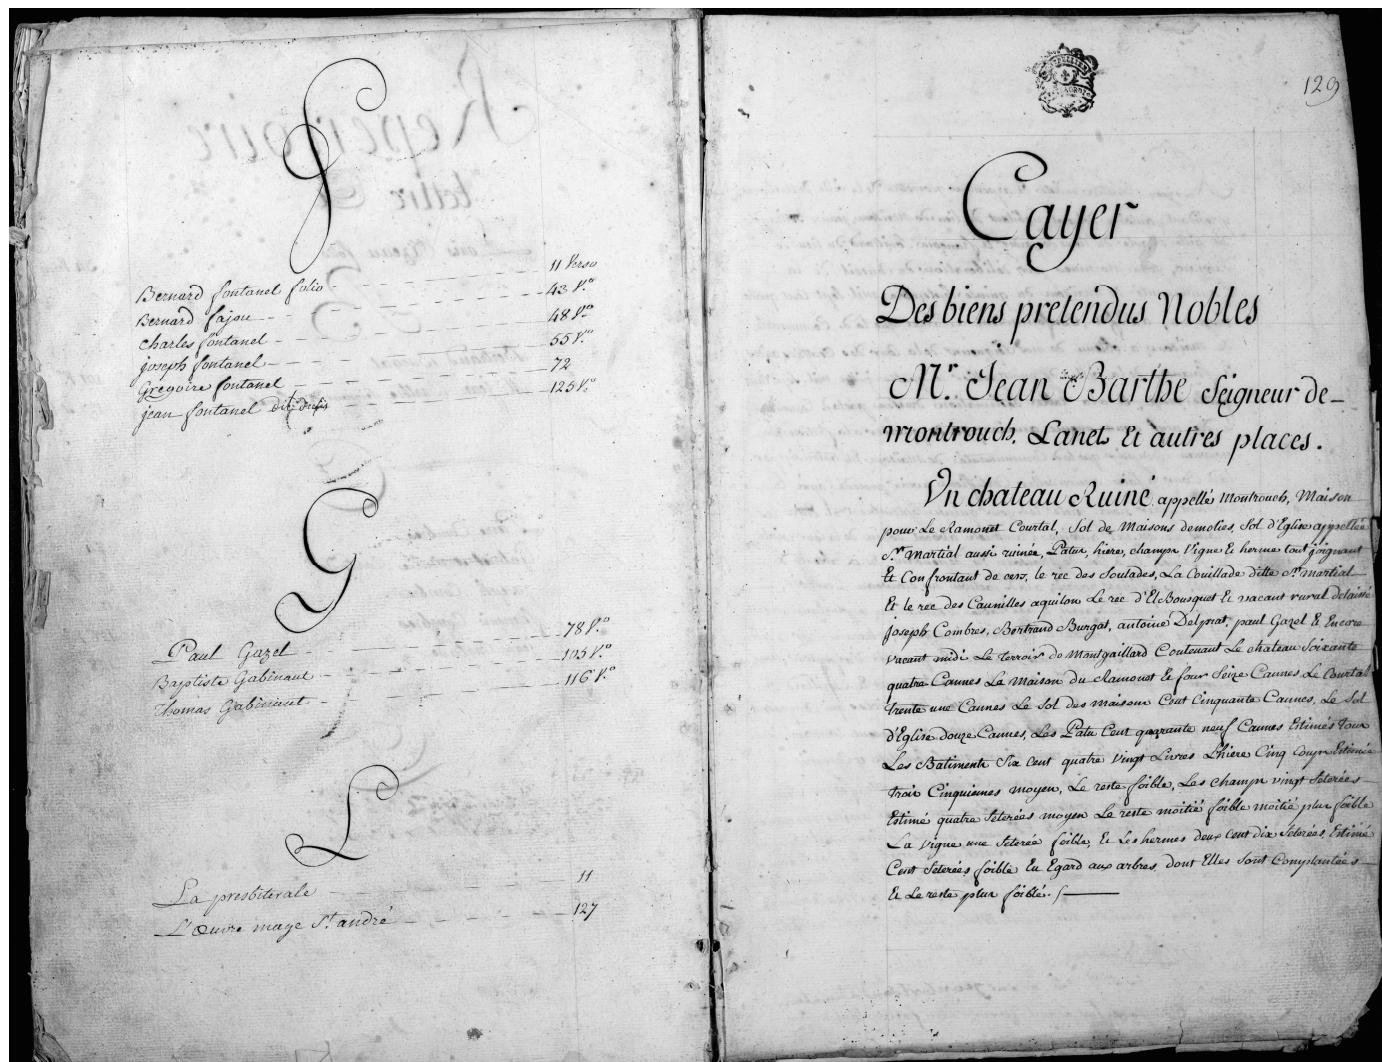 F
Bernard fontanel folio 11 Verso
Bernard fajou 43 V.º
charles fontanel 48 V.º
joseph fontanel 55 V.º
Gregoire fontanel 72
jean fontanel dit 125 V.º
G
Paul Gazel 78 V.º
Baptiste Gabinaut 105 V.º
Thomas Gabinaut 116 V.º
L
La presbiterale 11
L'Œuvre maye S.t andré 127
129
Cayer
Des biens pretendus Nobles
M.r Jean Barthe Seigneur de
montrouch, Lanet Et autres places.
Un chateau Ruiné appellé Montrouch, Maison
pour Le Ramonet Courtal, Sol de Maisons demolies, Sol d'Eglise appellée
S.t Martial aussi ruinée, Patu, hiere, champs Vigne Et herme tout joignant
Et Confrontant de cers, le rec des Soulades, La Couillade ditte S.t Martial
Et le rec des Caunilles aquilon Le rec d'El Bousquet Et vacant rural delaissé
joseph Combres, Bertrand Burgat, antoine Delprat, paul Gazel Et Encore
vacant midi Le terroir de Montgaillard Contenant Le chateau Soixante
quatre Cannes La Maison du Ramonet Et four Seize Cannes Le Courtal
trente une Cannes Le Sol des maisons Cent Cinquante Cannes, Le Sol
d'Eglise douze Cannes, Les Patu Cent quarante neuf Cannes Estimés tous
Les Batiments Six cent quatre vingt Livres L'hiere Cinq Coups Estimée
trois Cinquiemes moyen, Le reste foible, Les champs vingt Seterées
Estimé quatre Seterées moyen Le reste moitié foible moitié plus foible
La vigne une Seterée foible, Et Les hermes deux cent dix Seterées, Estimé
Cent Seterées foible Eu Egard aux arbres dont Elles Sont Complantées
Et Le reste plus foible.